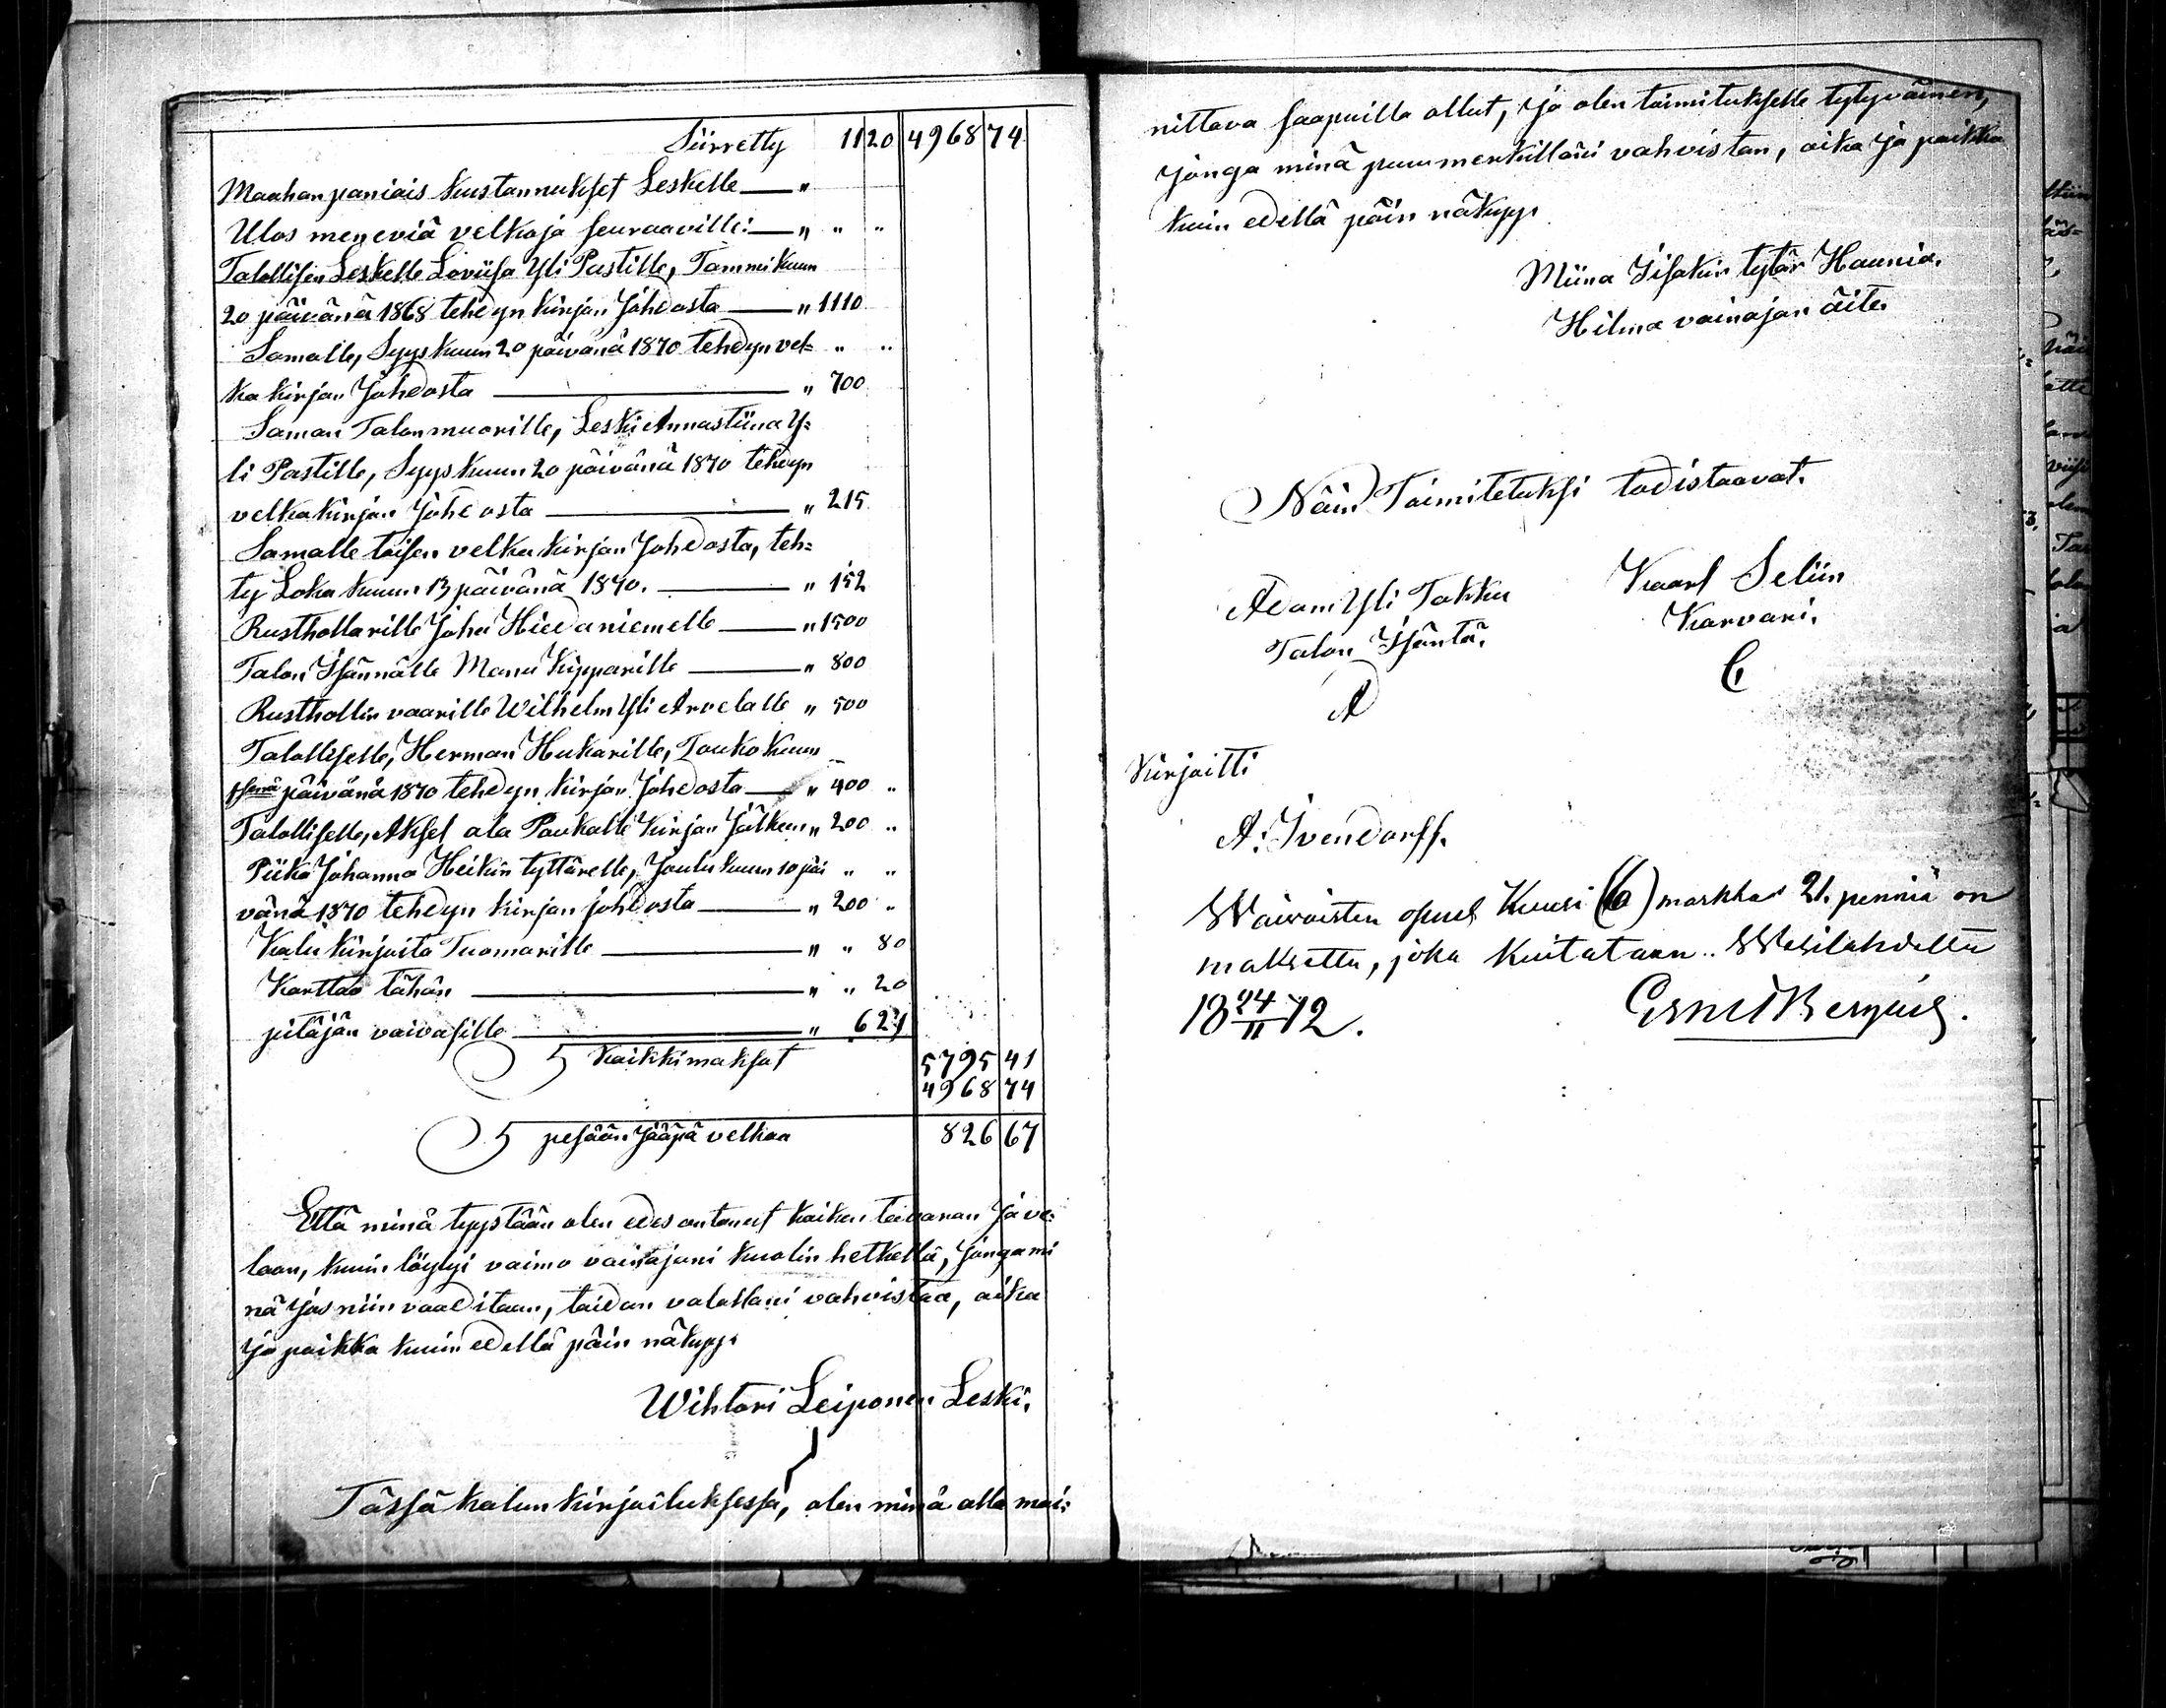 Siirretty 11 20 4968 74
Maahan paniais kustannukset Leskelle — "
Ulos meneviä velkoja seuraaville: — " " "
Talollisen Leskelle Loviisa Yli Pastille, Tammikuun
20 päivänä 1868 tehdyn kirjan Johdosta — " 1110
Samalle, Syyskuun 20 päivänä 1870 tehdyn vel= " "
ka kirjan Johdosta — " 700
Saman Talon muorille, Leski Annastiina Y=
li Pastille, Syyskuun 20 päivänä 1870 tehdyn
velkakirjan Johdosta — " 215
Samalle toisen velka kirjan Johdosta, teh=
ty Loka kuun 13 päivänä 1870. — " 152
Rusthollarille Joha Hiedaniemelle — " 1500
Talon Isännälle Manu Kipparille — " 800
Rusthollin vaarille Wilhelm Yli Arvelalle " 500
Talolliselle, Herman Hukarille, Touko kuun
päivänä 1870 tehdyn kirjan Johdosta — " 400 "
Talolliselle, Aksel ala Paukalle Kirjan Jälkeen " 200 "
Piika Johanna Heikin tyttärelle, Joulu kuun 10 päi " "
vänä 1870 tehdyn kirjan johdosta — " 200 "
Kalu kirjoita Tuomarille — " " 80
Karttao tähän — " " 20
pitäjän vaivasille — " 6 21
S Kaikki maksat 5795 41
4968 74
S pesään Jääpä velkaa 826 67
Että minä typstään olen edes antanut kaiken tavaran Ja ve=
laan, kuin löytyi vaimo vainajani kuolin hetkellä, Jonga mi
nä Jos niin vaaditaan, taidan valallani vahvistaa, aika
Ja paikka kuin edellä päin näkyy.
Wihtori Leiponen Leski.
Tässä kalun kirjoituksessa, olen minä alla mai=
nittava saapuilla ollut, Ja olen toimitukselle tytyväinen,
Jonga minä puumerkilläni vahvistan, aika Ja paikka
kuin edellä päin näkypp.
Miina Iisakin tytär Haunia.
Hilma vainajan äite.
Näin Toimitetuksi todistaavat.
Adam Yli Takku Kaarl Selin
Talon Isäntä. Karvari.
A C
Kirjoitti
A. Ivendorff.
Waivaisten osuus Kuusi (6) markkaa 21. penniä on
maksettu, joka kuitataan.. Wesilahdella
18 24/11 72. Ernst Bergius.